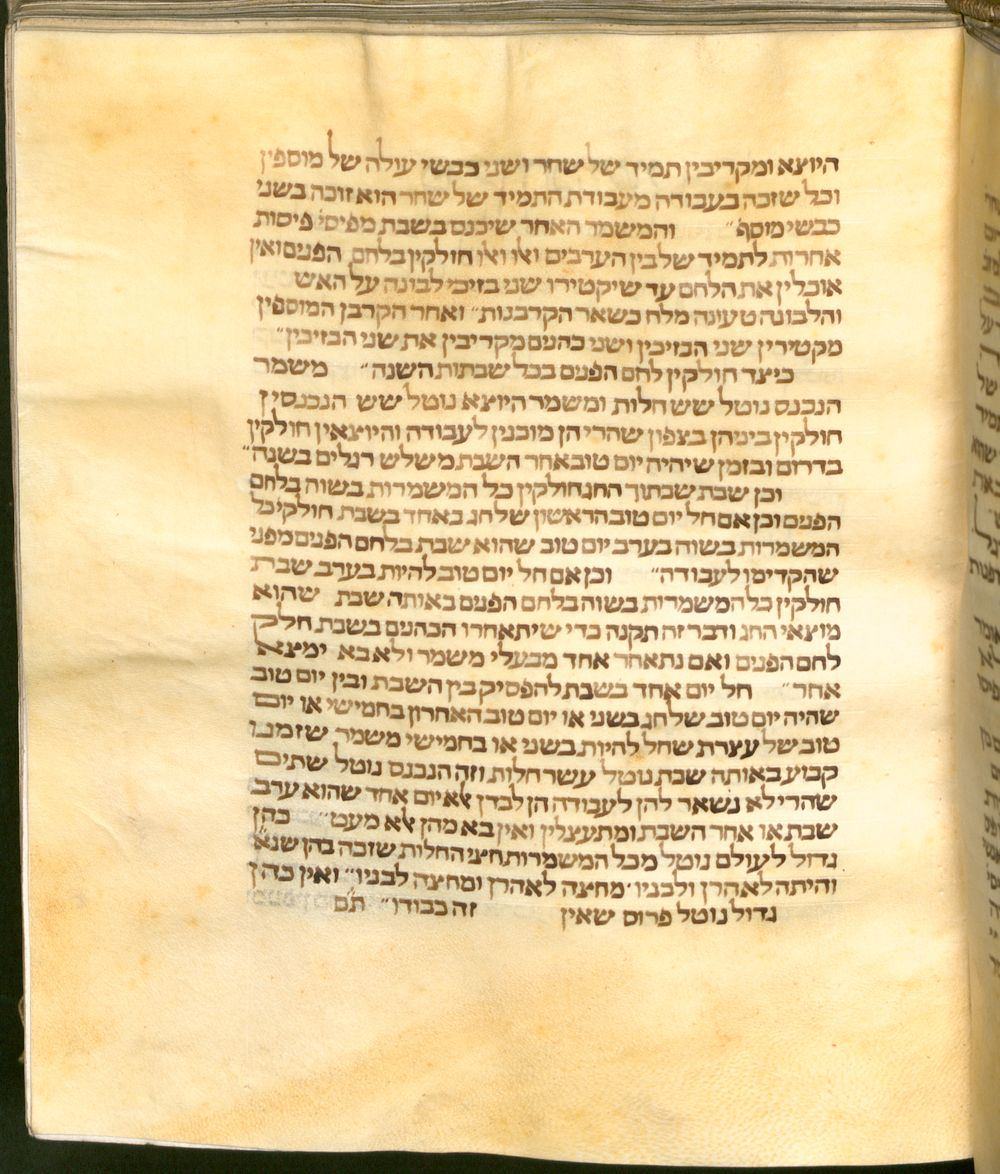 היוצא ומקריבין תמיד של שחר ושני כבשי עולה של מוספין
וכל שזכה בעבודה מעבודת התמיד של שחר הוא זוכה בשני
כבשי מוסף״ והמשמר האחר שיכנס בשבת מפיסי׳ פיסות
אחרות לתמיד של בין הערבים ואילו ואילו חולקין בלחם הפנים ואין
אוכלין את הלחם עד שיקטירו שני בזיכי לבונה על האש
והלבונה טעונה מלח כשאר הקרבנות״ ואחר הקרבן המוספין
מקטירין שני הבזיכין ושני כהנים מקריבין את שני הבזיכין״
כיצד חולקין לחם הפנים בכל שבתות השנה״ משמר
הנכנס נוטל שש חלות ומשמר היוצא נוטל שש הנכנסין
חולקין ביניהן בצפון שהרי הן מוכנין לעבודה והיוצאין חולקין
בדרום ובזמן שיהיה יום טוב אחר השבת משלש רגלים בשנה״
וכן שבת שבתוך החג חולקין כל המשמרות בשוה בלחם
הפנים וכן אם חל יום טוב הראשון של חג באחד בשבת חולקי׳ כל
המשמרות בשוה בערב יום טוב שהוא שבת בלחם הפנים מפני
שהקדימו לעבודה״ וכן אם חל יום טוב להיות בערב שבת
חולקין כל המשמרות בשוה בלחם הפנים באותה שבת שהוא
מוצאי החג ודבר זה תקנה כדי שיתאחרו הכהנים בשבת חלק
לחם הפנים ואם נתאחר אחד מבעלי משמר ולא בא ימצא
אחר״ חל יום אחד בשבת להפסיק בין השבת ובין יום טוב
שהיה יום טוב של חג בשני או יום טוב האחרון בחמישי או יום
טוב של עצרת שחל להיות בשני או בחמישי משמר שזמנו
קבוע באותה שבת נוטל עשר חלות וזה הנכנס נוטל שתים
שהרי לא נשאר להן לעבודה הן לבדן אלא יום אחד שהוא ערב
שבת או אחר השבת ומתעצלין ואין בא מהן אלא מעט״ כהן
גדול לעולם נוטל מכל המשמרות חצי החלות שזכה בהן שנא׳
והיתה לאהרן ולבניו׳ מחצה לאהרן ומחצה לבניו״ ואין כהן
גדול נוטל פרוס שאין זה כבודו״ תם